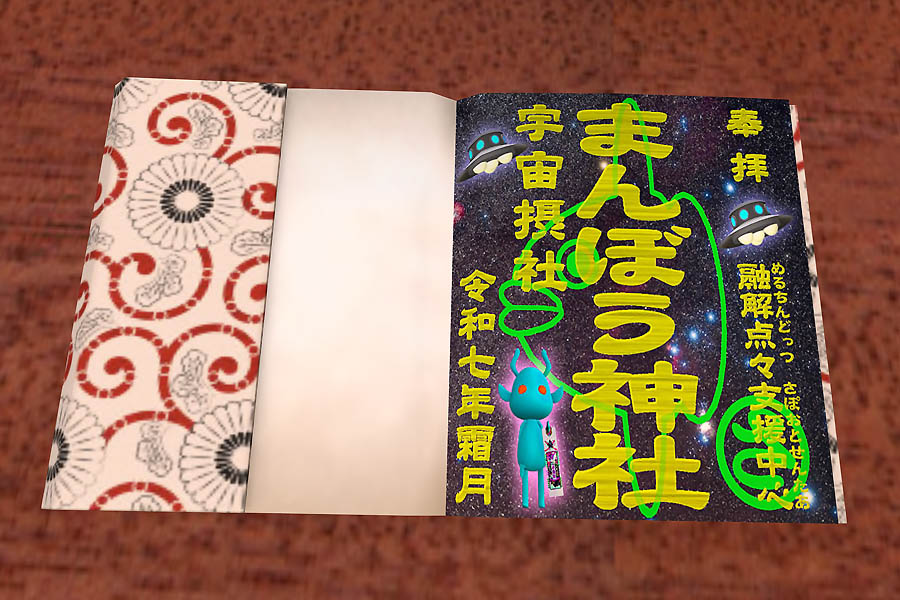 奉拝
めるちんどっつ さぽおとせんたあ
融解点々支援中心
まんぼう神社
宇宙摂社
令和七年霜月